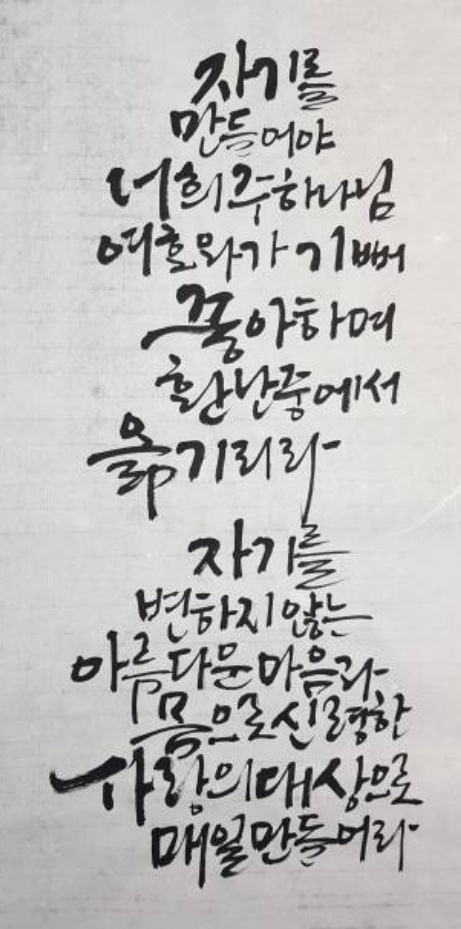 자기를
만들어야
너희 주 하나님
여호와가 기뻐
좋아하며
환난 중에서
옮기리라
자기를
변하지 않는
아름다운 마음과
몸으로 신령한
사랑의 대상으로
매일 만들어라